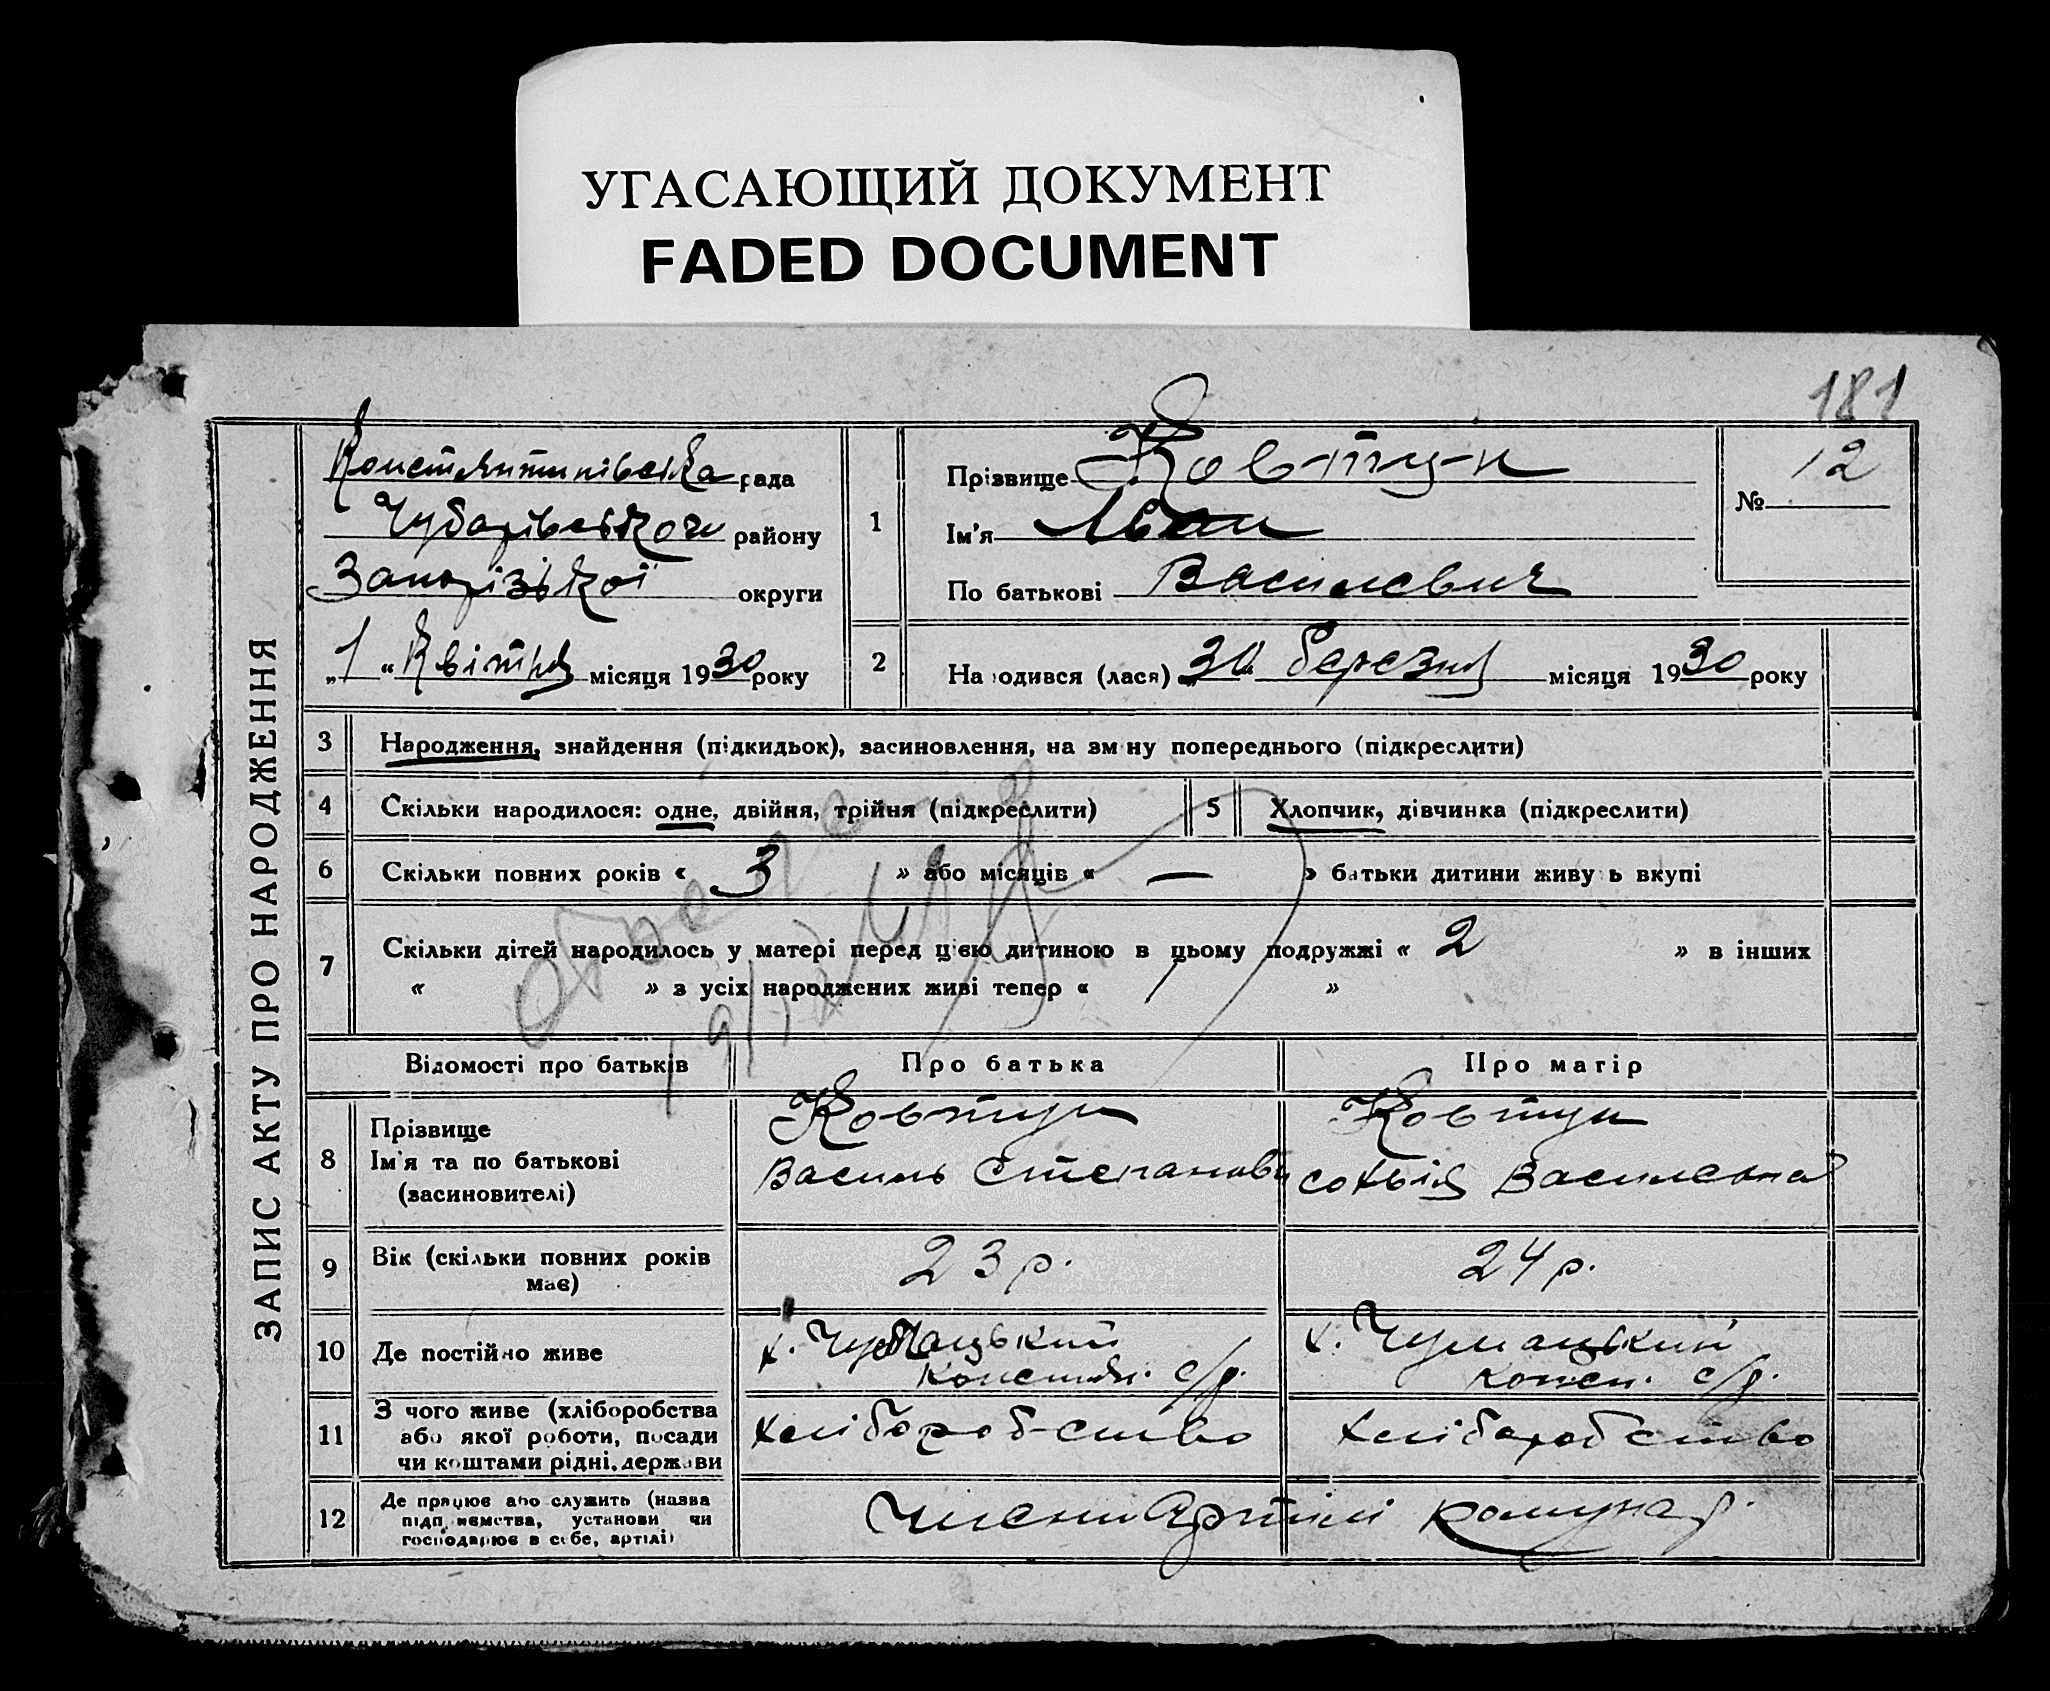 УГАСАЮЩИЙ ДОКУМЕНТ
FADED DOCUMENT
181
ЗАПИС АКТУ ПРО НАРОДЖЕННЯ
Констянтинівська рада
Чубарівського району
Запорізької округи
„1“ Квітня місяця 1930 року
1
Прізвище Ковтун
Ім'я Іван
По батькові Васильович
№ 12
2
Народився (лася) „30“ березня місяця 1930 року
3 Народження, знайдення (підкидьок), засиновлення, на зміну попереднього (підкреслити)
4 Скільки народилося: одне, двійня, трійня (підкреслити) 5 Хлопчик, дівчинка (підкреслити)
6 Скільки повних років « 3 » або місяців « — » батьки дитини живуть вкупі
7 Скільки дітей народилось у матері перед цією дитиною в цьому подружжі « 2 » в інших
« » з усіх народжених живі тепер « »
Відомості про батьків Про батька Про матір
8 Прізвище
Ім'я та по батькові
(засиновителі)
Ковтун
Василь Степанович
Ковтун
Софья Васильовна
9 Вік (скільки повних років
має)
23 р.
24 р.
10 Де постійно живе
х. Чумацький
Констян. с/р.
х. Чумацький
Конст. с/р.
11 З чого живе (хліборобства
або якої роботи, посади
чи коштами рідні, держави
хліборобство
хліборобство
12 Де працює або служить (назва
підприємства, установи чи
господарює в себе, артілі)
Члени Артілі